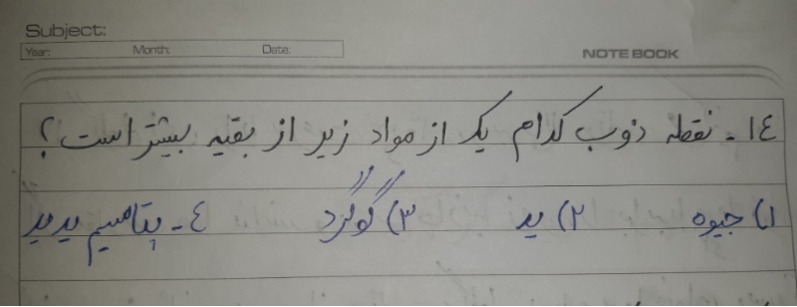 Subject:
Year: Month: Date: NOTE BOOK
١٤- نقطه ذوب کدام یک از مواد زیر از بقیه بیشتر است؟
۱) جیوه ۲) ید ۳) گوگرد ٤- پتاسیم یدید